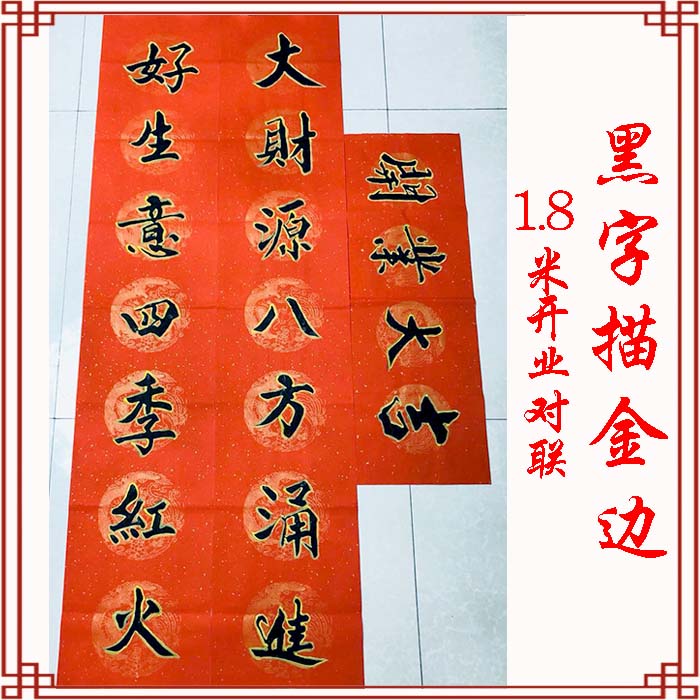 黑字描金边
1.8米开业对联
開業大吉
大財源八方涌進
好生意四季紅火